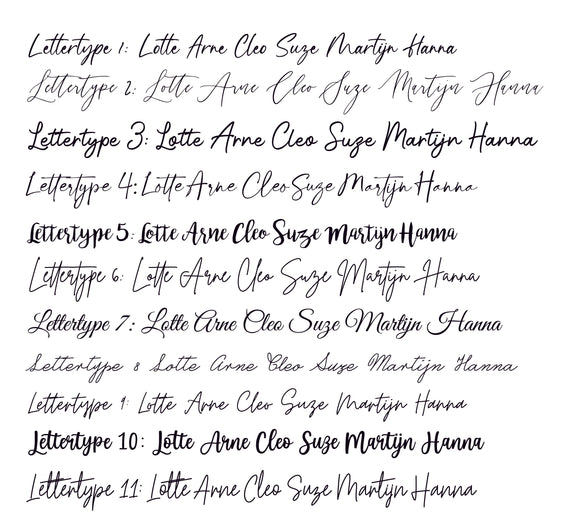 Lettertype 1: Lotte Arne Cleo Suze Martijn Hanna
Lettertype 2: Lotte Arne Cleo Suze Martijn Hanna
Lettertype 3: Lotte Arne Cleo Suze Martijn Hanna
Lettertype 4: Lotte Arne Cleo Suze Martijn Hanna
Lettertype 5: Lotte Arne Cleo Suze Martijn Hanna
Lettertype 6: Lotte Arne Cleo Suze Martijn Hanna
Lettertype 7: Lotte Arne Cleo Suze Martijn Hanna
Lettertype 8 Lotte Arne Cleo Suze Martijn Hanna
Lettertype 9: Lotte Arne Cleo Suze Martijn Hanna
Lettertype 10: Lotte Arne Cleo Suze Martijn Hanna
Lettertype 11: Lotte Arne Cleo Suze Martijn Hanna